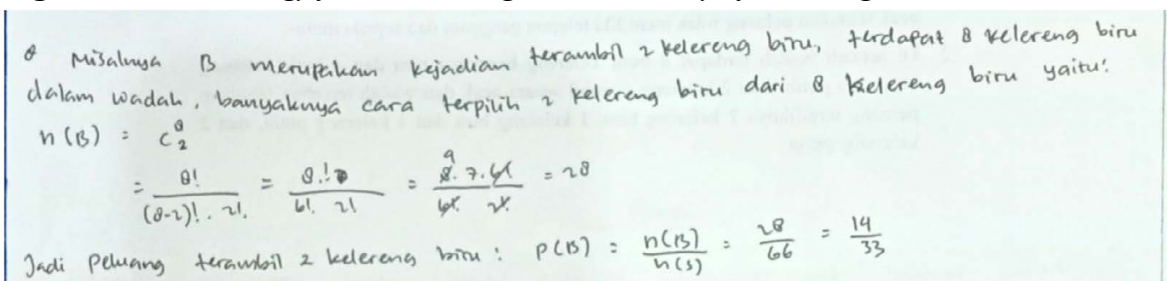 Misalnya B merupakan kejadian terambil 2 kelereng biru, terdapat 8 kelereng biru
dalam wadah, banyaknya cara terpilih 2 kelereng biru dari 8 kelereng biru yaitu:
n(B) = C₂⁸
= 8! / (8-2)! . 2! = 8! / 6! 2! = 8. 7. 6! / 6! 2! = 28
Jadi Peluang terambil 2 kelereng biru : P(B) = n(B) / n(s) = 28 / 66 = 14 / 33